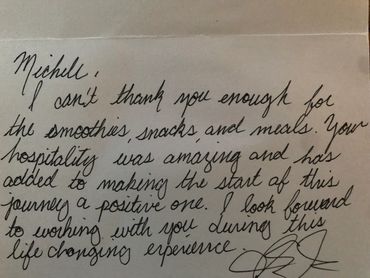 Michell,
I can't thank you enough for
the smoothies, snacks, and meals. Your
hospitality was amazing and has
added to making the start of this
journey a positive one. I look forward
to working with you during this
life changing experience.